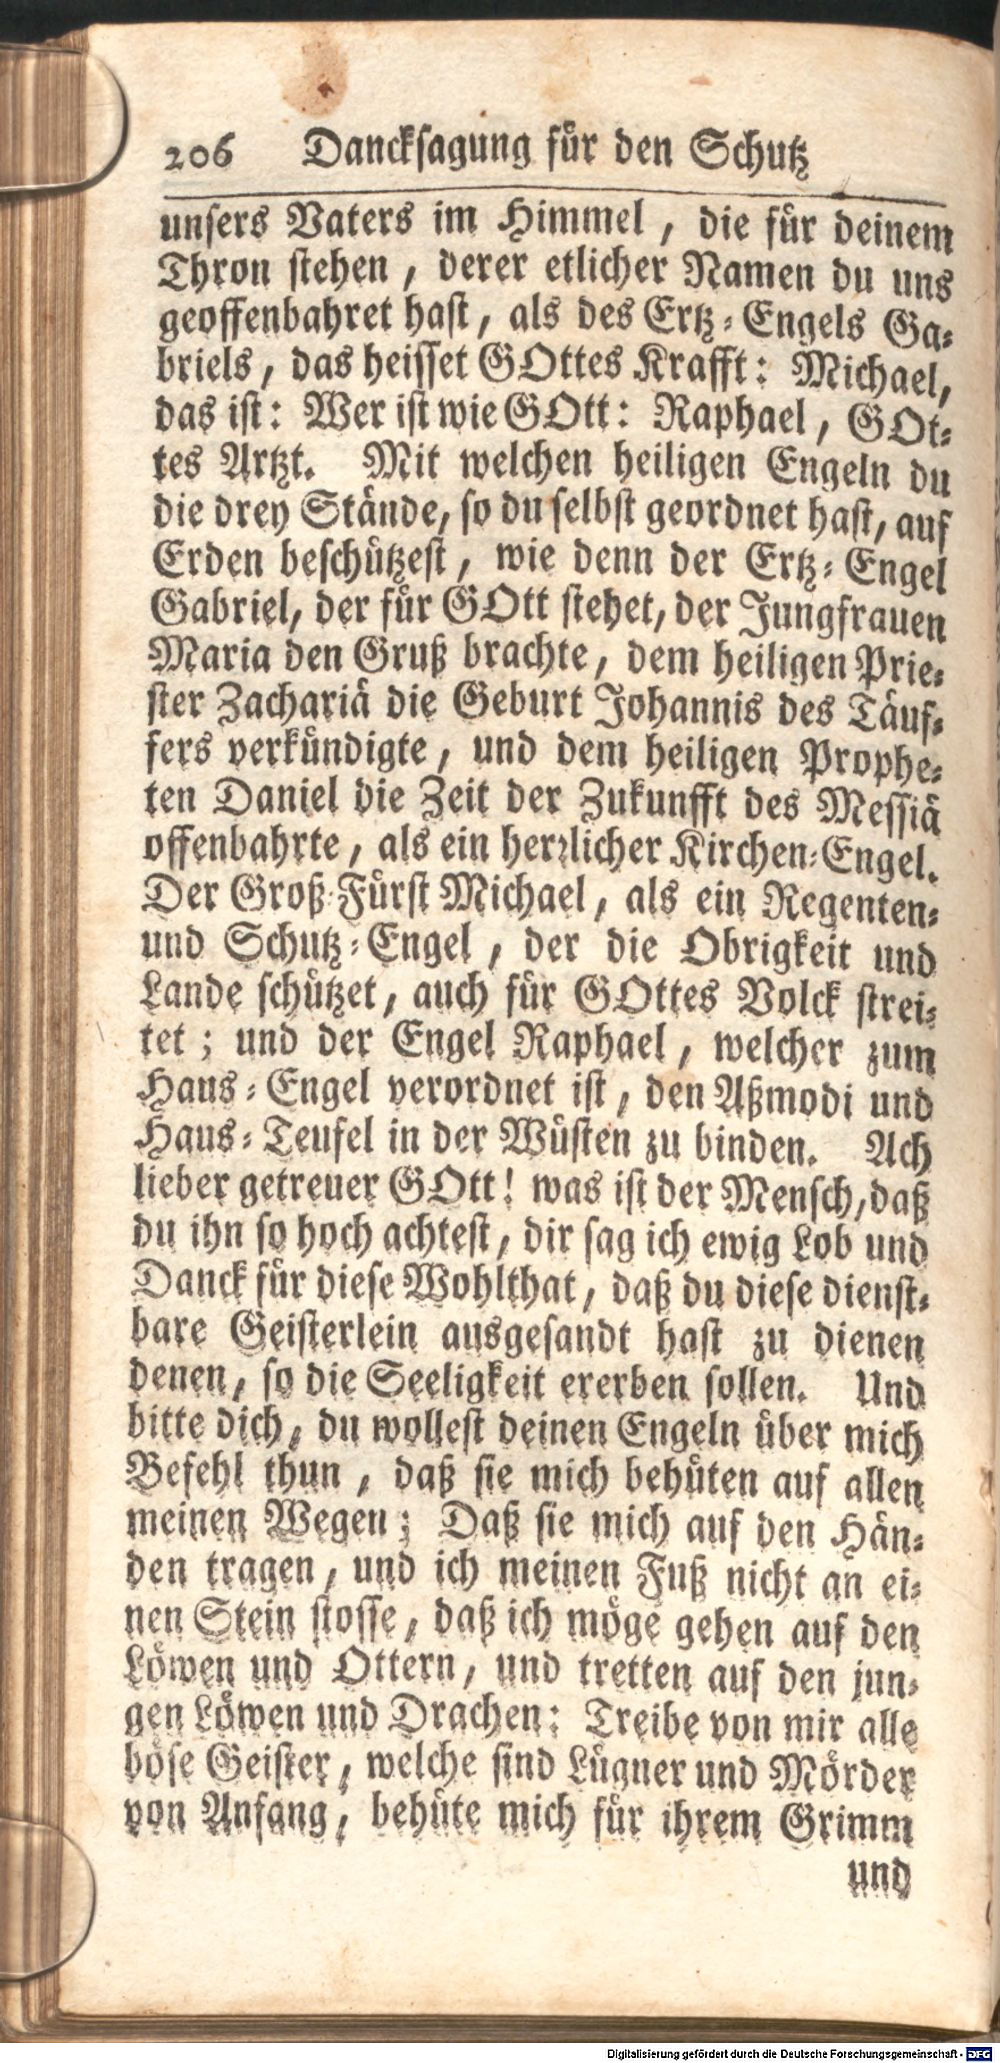 206 Dancksagung für den Schutz
unsers Vaters im Himmel, die für deinem
Thron stehen, derer etlicher Namen du uns
geoffenbahret hast, als des Ertz-Engels Ga-
briels, das heisset GOttes Krafft: Michael,
das ist: Wer ist wie GOtt: Raphael, GOt-
tes Artzt. Mit welchen heiligen Engeln du
die drey Stände, so du selbst geordnet hast, auf
Erden beschützest, wie denn der Ertz-Engel
Gabriel, der für GOtt stehet, der Jungfrauen
Maria den Gruß brachte, dem heiligen Prie-
ster Zachariä die Geburt Johannis des Täuf-
fers verkündigte, und dem heiligen Prophe-
ten Daniel die Zeit der Zukunfft des Messiä
offenbahrte, als ein herrlicher Kirchen-Engel.
Der Groß-Fürst Michael, als ein Regenten-
und Schutz-Engel, der die Obrigkeit und
Lande schützet, auch für GOttes Volck strei-
tet; und der Engel Raphael, welcher zum
Haus-Engel verordnet ist, den Aßmodi und
Haus-Teufel in der Wüsten zu binden. Ach
lieber getreuer GOtt! was ist der Mensch, daß
du ihn so hoch achtest, dir sag ich ewig Lob und
Danck für diese Wohlthat, daß du diese dienst-
bare Geisterlein ausgesandt hast zu dienen
denen, so die Seeligkeit ererben sollen. Und
bitte dich, du wollest deinen Engeln über mich
Befehl thun, daß sie mich behüten auf allen
meinen Wegen; Daß sie mich auf den Hän-
den tragen, und ich meinen Fuß nicht an ei-
nen Stein stosse, daß ich möge gehen auf den
Löwen und Ottern, und tretten auf den jun-
gen Löwen und Drachen: Treibe von mir alle
böse Geister, welche sind Lügner und Mörder
von Anfang, behüte mich für ihrem Grimm
und
Digitalisierung gefördert durch die Deutsche Forschungsgemeinschaft - DFG